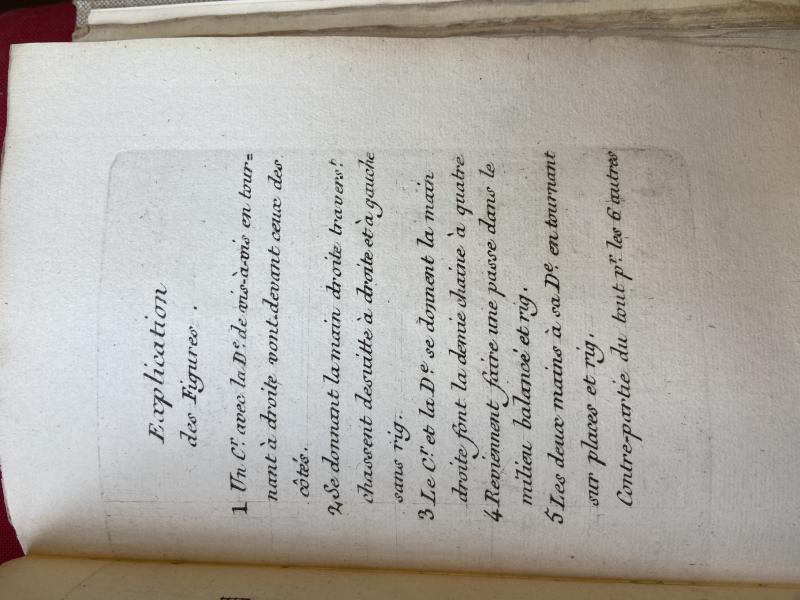 Explication
des Figures.
1 Un C.r avec la D.e de vis-à-vis en tour=
nant à droite vont devant ceux des
côtés.
2 Se donnant la main droite travers.t
chassent desuitte à droite et à gauche
sans rig.
3 Le C.r et la D.e se donnent la main
droite font la demie chaine à quatre
4 Reviennent faire une passe dans le
milieu balancé et rig.
5 Les deux mains à sa D.e en tournant
sur places et rig.
Contre-partie du tout p.r les 6 autres